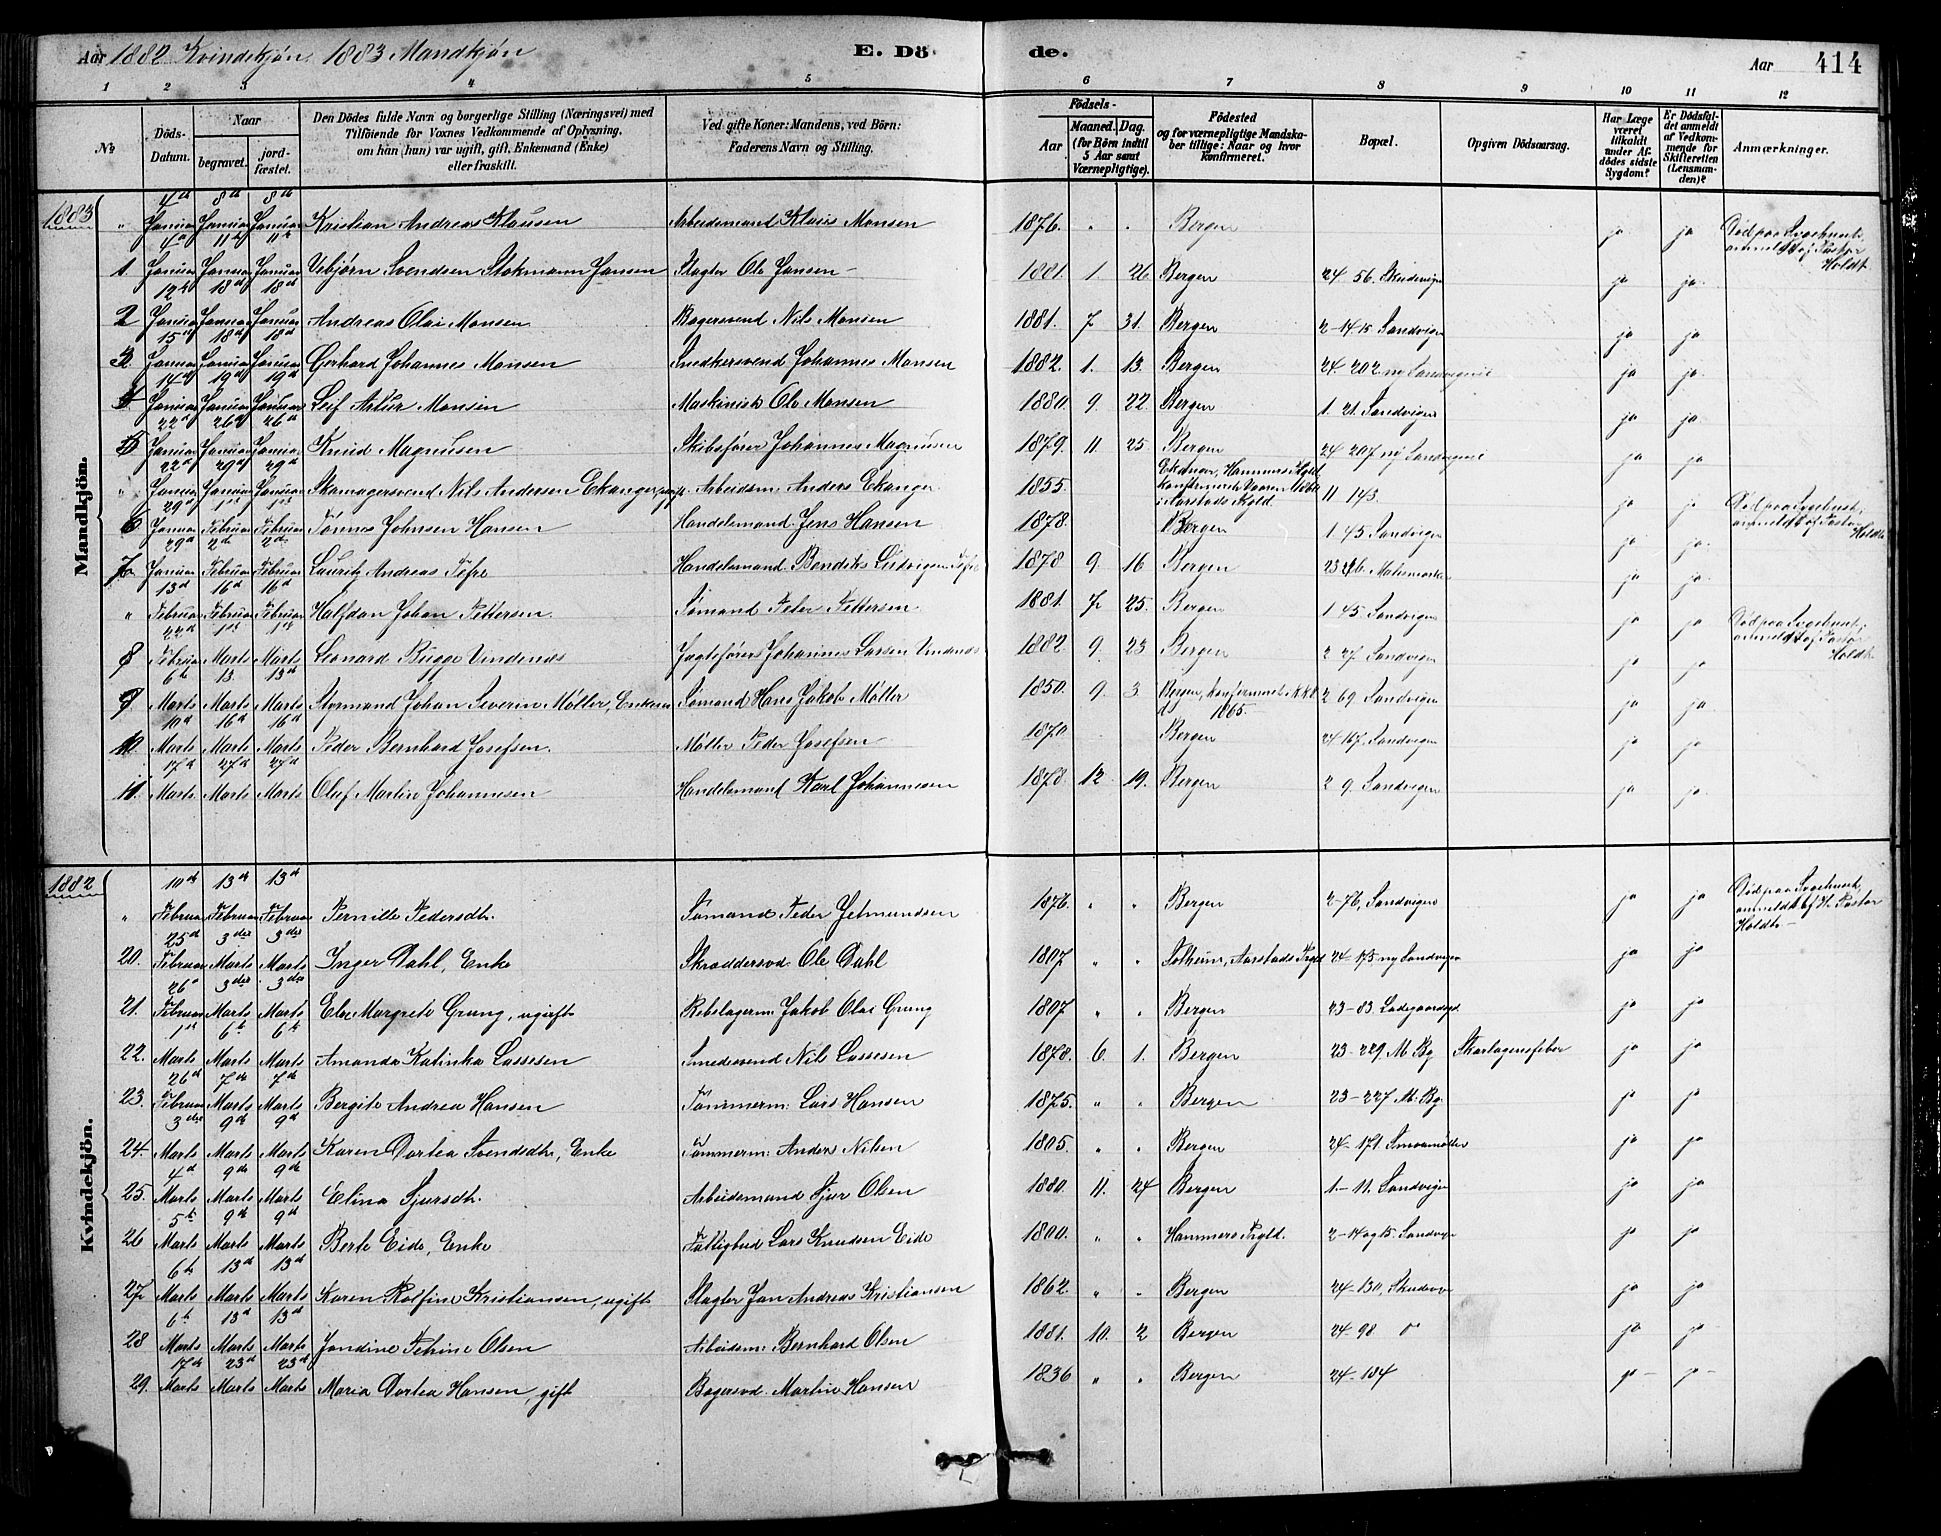 Aar 1882 Kvindekjøn. 1883 Mandkjøn E. Dö de. Aar 414
1 2 3 4 5 6 7 8 9 10 11 12
No Döds-Datum. Naar begravet. jordfæstet. Den Dödes fulde Navn og borgerlige Stilling (Næringsvei) med Tilföiende for Voxnes Vedkommende af Oplysning, om han (hun) var ugift, gift, Enkemand (Enke) eller fraskilt. Ved gifte Koner: Mandens, ved Börn: Faderens Navn og Stilling. Födsels- Aar Maaned. Dag. (for Börn indtil 5 Aar samt Værnepligtige). Födested og for værnepligtige Mandskaber tillige: Naar og hvor Konfirmeret. Bopæl. Opgiven Dödsaarsag. Har Læge været tilkaldt under Afdödes sidste Sygdom? Er Dödsfaldet anmeldt af Vedkommende for Skifteretten (Lensmanden)? Anmærkninger.
Mandkjön.
1883 " 4de Januar 8de Januar 8de Januar Kristian Andreas Klausen Arbeidsmand Klaus Monsen 1876. " " Bergen ja ja Död paa Sygehuset, anmeldt af Pastor Holdt
1. 4de Januar 11te Januar 11te Januar Asbjørn Svendsen Stokmann Jansen Slagter Ole Jansen 1881. 1. 26 Bergen 24 56. Skudevigen ja ja.
2 12te Januar 18de Januar 18de Januar Andreas Olai Monsen Bagersvend Nils Monsen 1881. 7 31. Bergen 2-1415 Sandvigen ja ja
3. 15de Januar 18de Januar 18de Januar Gerhard Johannes Monsen Snedkersvend Johannes Monsen 1882. 1. 13. Bergen 24. 202 ny Sandvigsvei ja ja.
4 14de Januar 19de Januar 19de Januar Leif Artur Monsen Maskinist Ole Monsen 1880. 9. 22. Bergen 1. 21. Sandvigen ja ja.
5 22de Januar 26de Januar 26de Januar Knud Magnusen Skibsfører Johannes Magnusen 1879. 11 25 Bergen 24 207 ny Sandvigsvei ja ja
" 22de Januar 29de Januar 29de Januar Skomagersvend Nils Andersen Ekanger, ugift. Arbeidsm: Anders Ekanger 1855. Ekanger, Hammers Pgld i Aarstads Pgld. 11 143 Död paa Sygehuset, anmeldt af Pastor Holdt
6 29de Januar 1ste Februar 1ste Februar Tønnes Johnsen Hansen Handelsmand Jens Hansen 1878. Bergen 1. 45 Sandvigen ja ja.
7 29de Januar 2de Februar 2de Februar Lauritz Andreas Tefre Handelsmand Bendiks Ludvigsen Tefre 1878 9. 16 Bergen ja ja
" 13de Februar 16de Februar 16de Februar Halfdan Johan Pettersen. Sømand Peter Pettersen 1881. 7 25. Bergen 1. 45. Sandvigen ja ja Död paa Sygehuset, anmeldt af Pastor Holdt
8 22de Februar 1ste Marts 1ste Marts Leonard Bugge Vindenæs Jagtefører Johannes Larsen Vindenæs 1882. 9. 23. Bergen 2 27. Sandvigen ja ja
9. 6te Marts 13. Marts 13de Marts Styrmand Johan Severin Møller, Enkem. Sømand Hans Jakob Møller 1850. 9. 3. Bergen, konfirmeret 1865. 2 69. Sandvigen ja ja
10. 10de Marts 16de Marts 16de Marts Peder Bernhard Josefsen. Møller Peder Josefsen 1870 Bergen 24 167. Sandvigen ja ja
11. 17de Marts 27de Marts 27de Marts Oluf Martin Johannesen Handelsmand Karl Johannesen 1878. 12. 19. Bergen 2 9. Sandvigen ja ja.
Kvindekjön.
1882 " 10de Februar 13de Februar 13de Februar Pernille Pedersdtr. Sømand Peder Jetmundsen 1876. " " Bergen 2-76, Sandvigen ja ja Död paa Sygehuset, anmeldt af Hr Pastor Holdt
20. 25de Februar 3die Marts 3die Marts Inger Dahl, Enke Skræddersvd. Ole Dahl 1807 " " Solheim, Aarstads Pgld 24-175 ny Sandvigen ja ja
21. 26de Februar 3die Marts 3die Marts Else Margrete Grung, ugift Rebslagerm: Jakob Olai Grung 1807 " " Bergen 23-83. Ladegaardsgd. ja ja
22. 1ste Marts 6te Marts 6te Marts Amanda Katinka Lassesen Smedsvend Nils Lassesen 1878. 6. 1. Bergen 23-229 M. Bg Skarlagensfeber ja ja
23. 26de Februar 7de Marts 7de Marts Bergite Andrea Hansen Tømmerm: Lars Hansen 1875. " " Bergen 23-227 M. Bg. ja ja
24. 3die Marts 9de Marts 9de Marts Karen Dortea Svendsdtr, Enke Tømmerm: Anders Nilsen 1805. " " Bergen 24-171. Smøremøllen ja ja
25. 4de Marts 9de Marts 9de Marts Elina Sjursdtr. Arbeidsmand Sjur Olsen 1880. 11. 24 Bergen 1.-11. Sandvigen ja ja
26 5te Marts 9de Marts 9de Marts Berte Eide, Enke Fattigbud Lars Knudsen Eide 1800. " " Hammers Pgld. 2-14 og 15. Sandvigen ja ja
27 6te Marts 13de Marts 13de Marts Karen Rolfine Kristiansen, ugift Slagter Jan Andreas Kristiansen 1862. " " Bergen 24-130, Skudevig ja ja
28 6te Marts 13de Marts 13de Marts Jondine Petrine Olsen Arbeidsm: Bernhard Olsen 1881. 10. 2 Bergen 24-98 ja ja
29. 17de Marts 23de Marts 23de Marts Maria Dortea Hansen, gift Bagersvd. Martin Hansen 1836 " " Bergen 24-104 ja ja